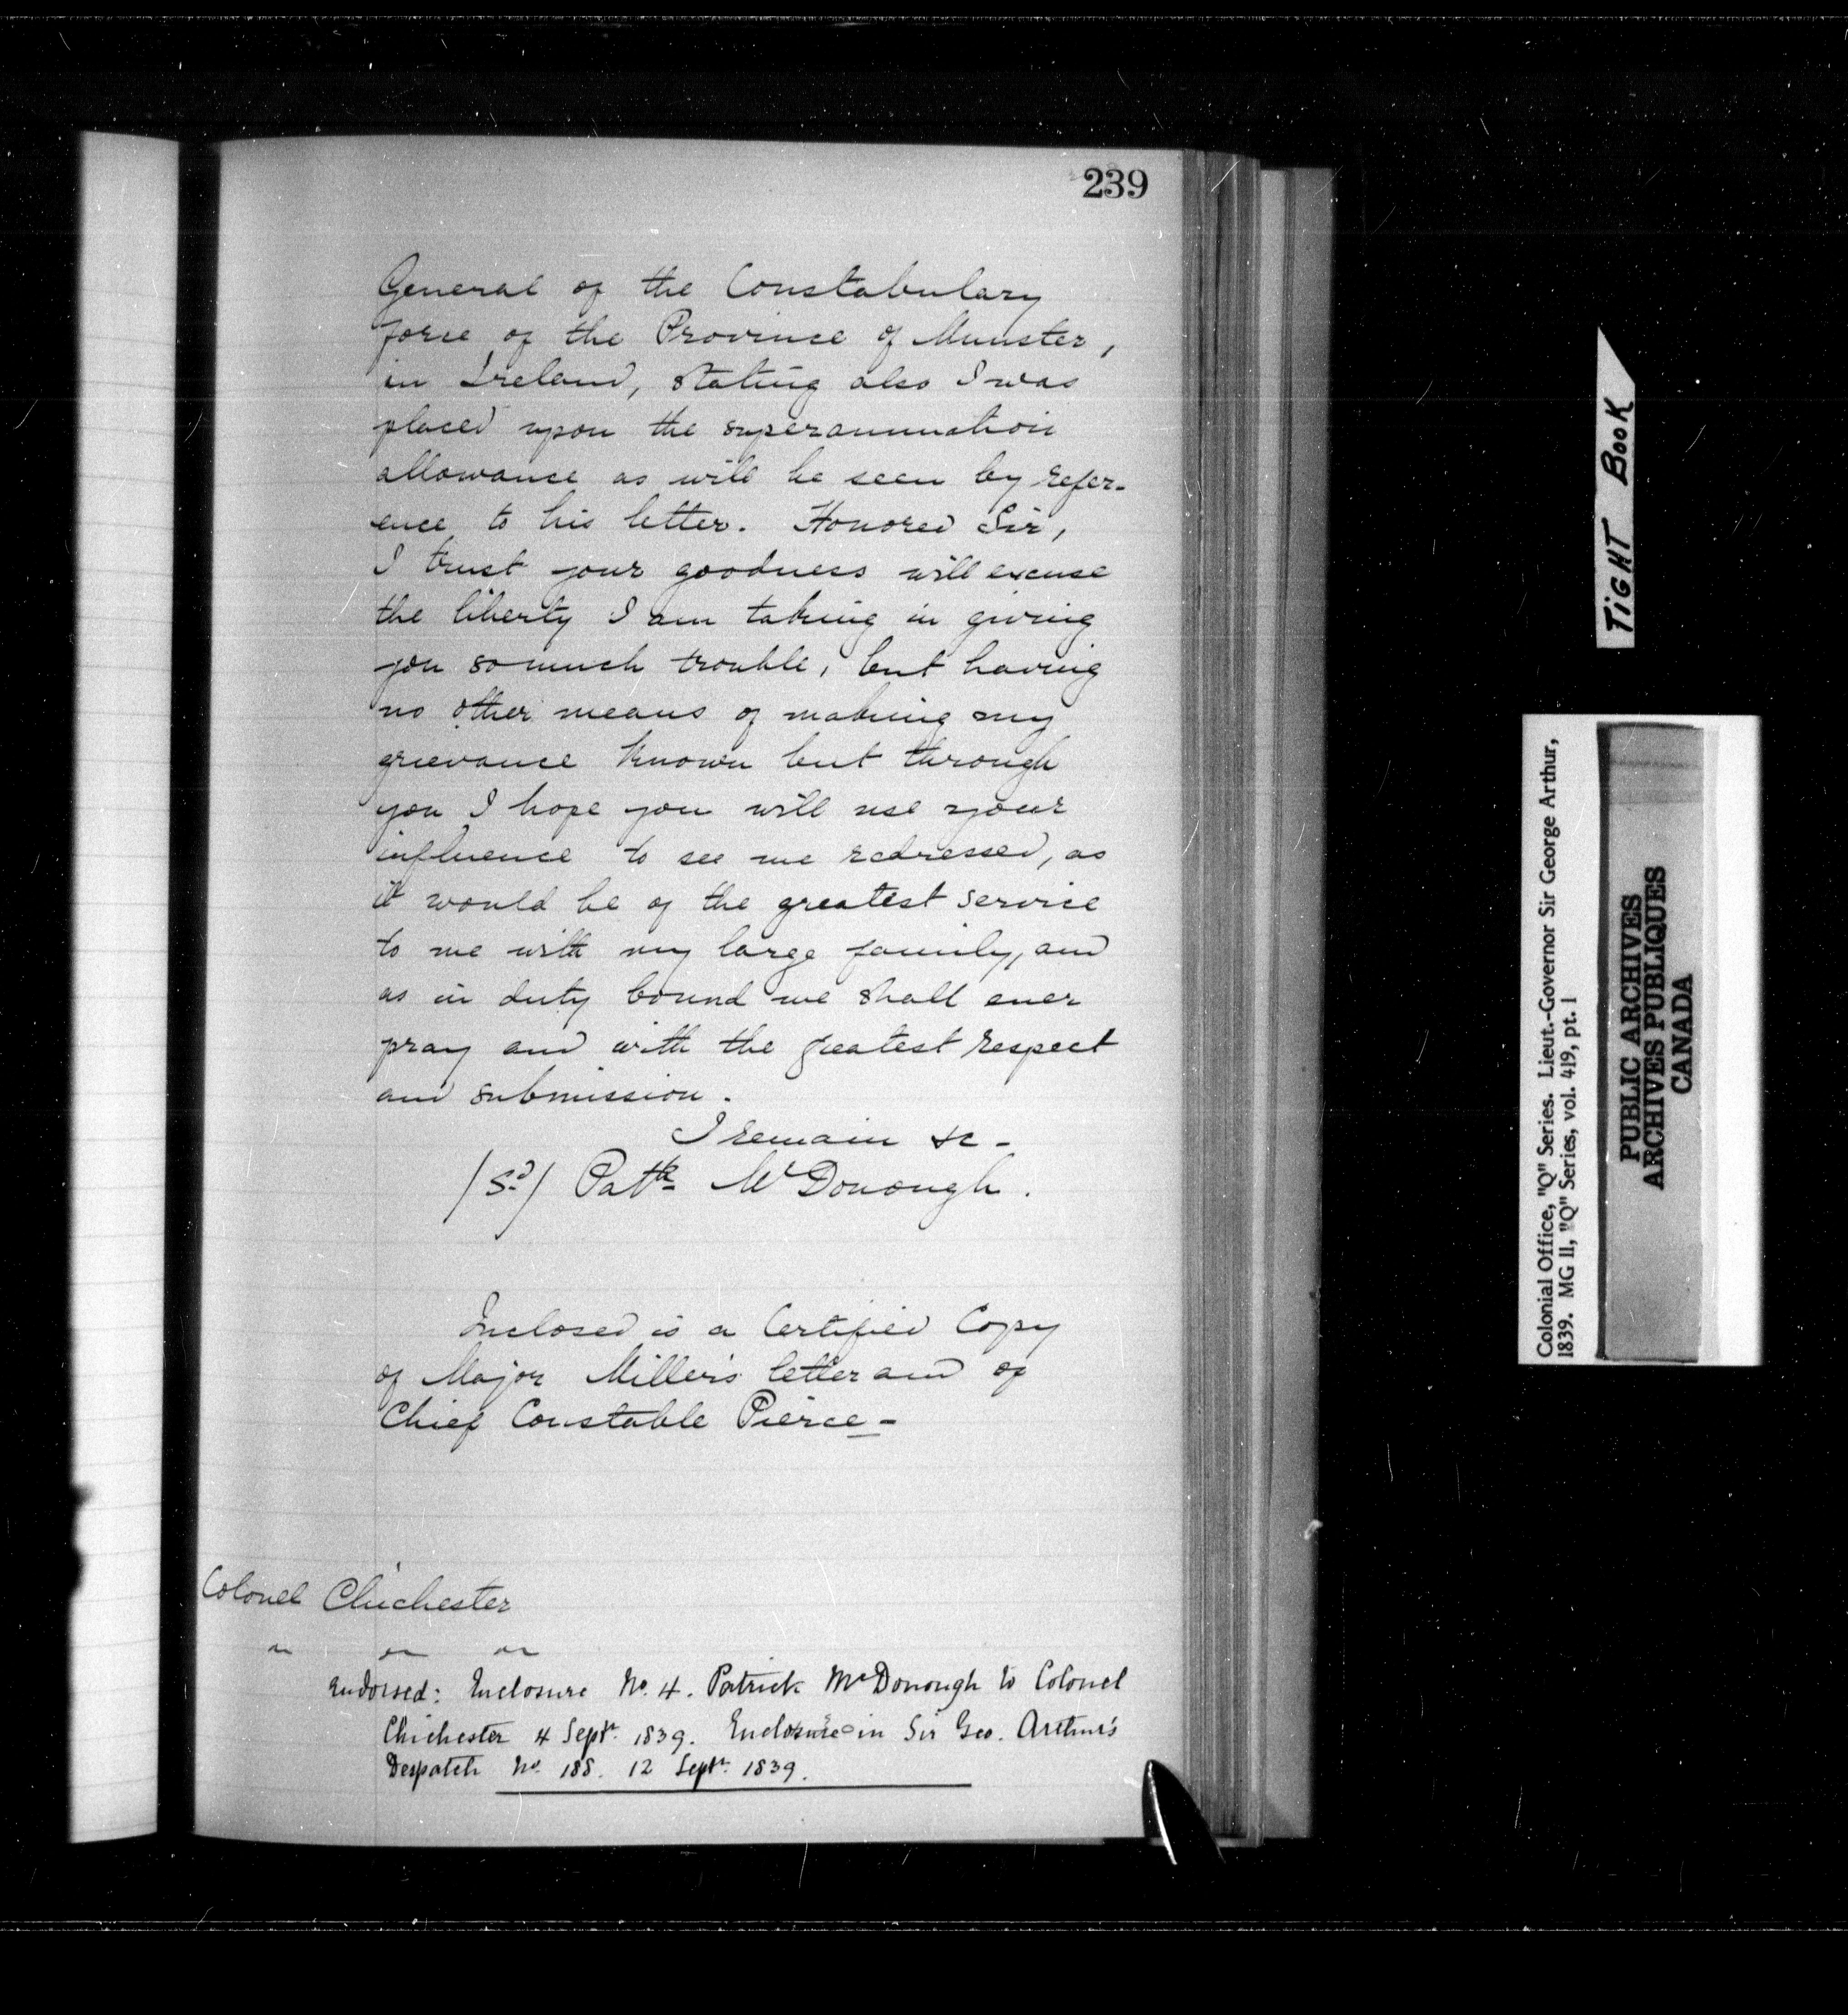 239
General of the Constabulary
force of the Province of Munster,
in Ireland, stating also I was
placed upon the superannuation
allowance as will be seen by refer-
ence to his letter. Honored Sir,
I trust your goodness will excuse
the liberty I am taking in giving
you so much trouble, but having
no other means of making my
grievance known but through
you I hope you will use your
influence to see me redressed, as
it would be of the greatest service
to me with my large family, and
as in duty bound we shall ever
pray and with the greatest respect
and submission.
I remain &c -
/Sd/ Patk McDonough.
Inclosed is a Certified Copy
of Major Miller's letter and of
Chief Constable Pierce -
Colonel Chichester
Endorsed: Enclosure No. 4. Patrick McDonough to Colonel
Chichester 4 Septr. 1839. Enclosure in Sir Geo. Arthur's
Despatch No. 188. 12 Septr. 1839.
TIGHT BOOK
Colonial Office, "Q" Series. Lieut.-Governor Sir George Arthur,
1839. MG 11, "Q" Series, vol. 419, pt. 1
PUBLIC ARCHIVES
ARCHIVES PUBLIQUES
CANADA